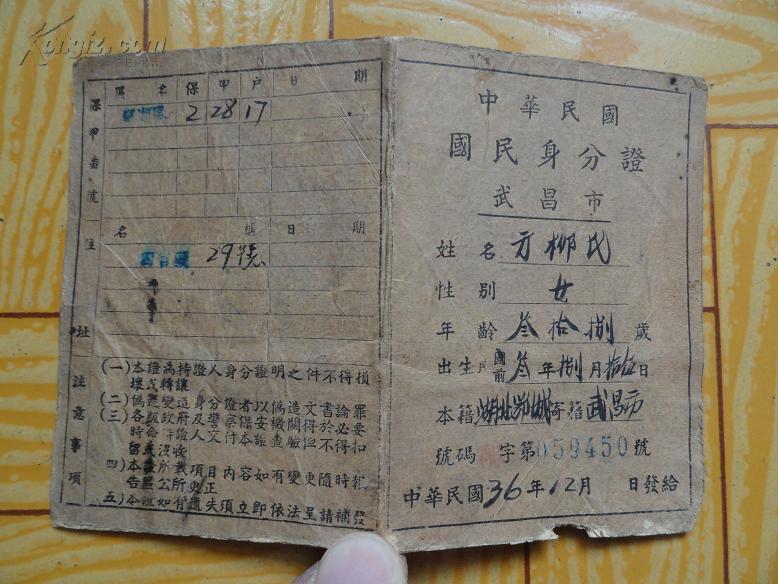 中華民國
國民身分證
武昌市
姓名 方柳氏
性別 女
年齡 叁拾捌 歲
出生 民國前 叁 年 捌 月 拾五 日
本籍 湖北鄂城 寄籍 武昌市
號碼 字第 059450 號
中華民國 36 年 12 月 日發給
保甲番號
區名 保 甲 戶 日期
2 28 17
住址
名稱 日期
29號
注意事項
(一)本證為持證人身分證明之件不得損
壞或轉讓
(二)偽造變造身分證者以偽造文書論罪
(三)各級政府及警察保安機關於必要
時命證人交付查驗但不得扣
留或沒收
(四)本證所載項目內容如有變更隨時報
告區公所更正
(五)本證如有遺失須立即依法呈請補發
Kongfz.com